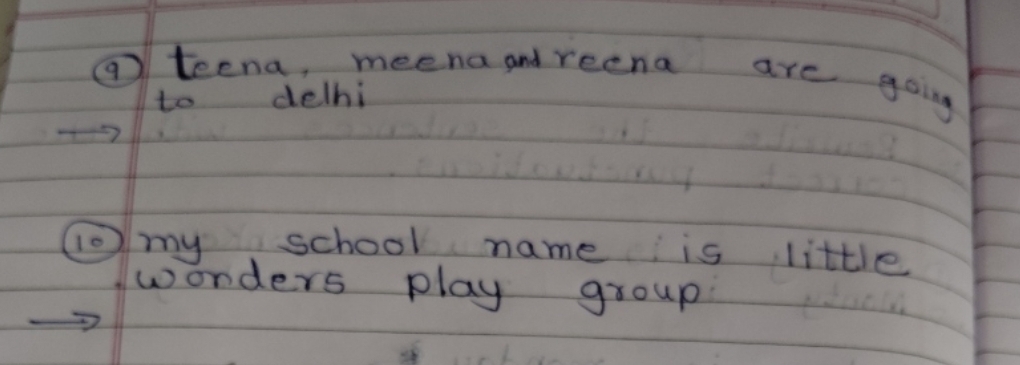 9 teena, meena and reena are going
to delhi
→
10 my school name is little
wonders play group
→